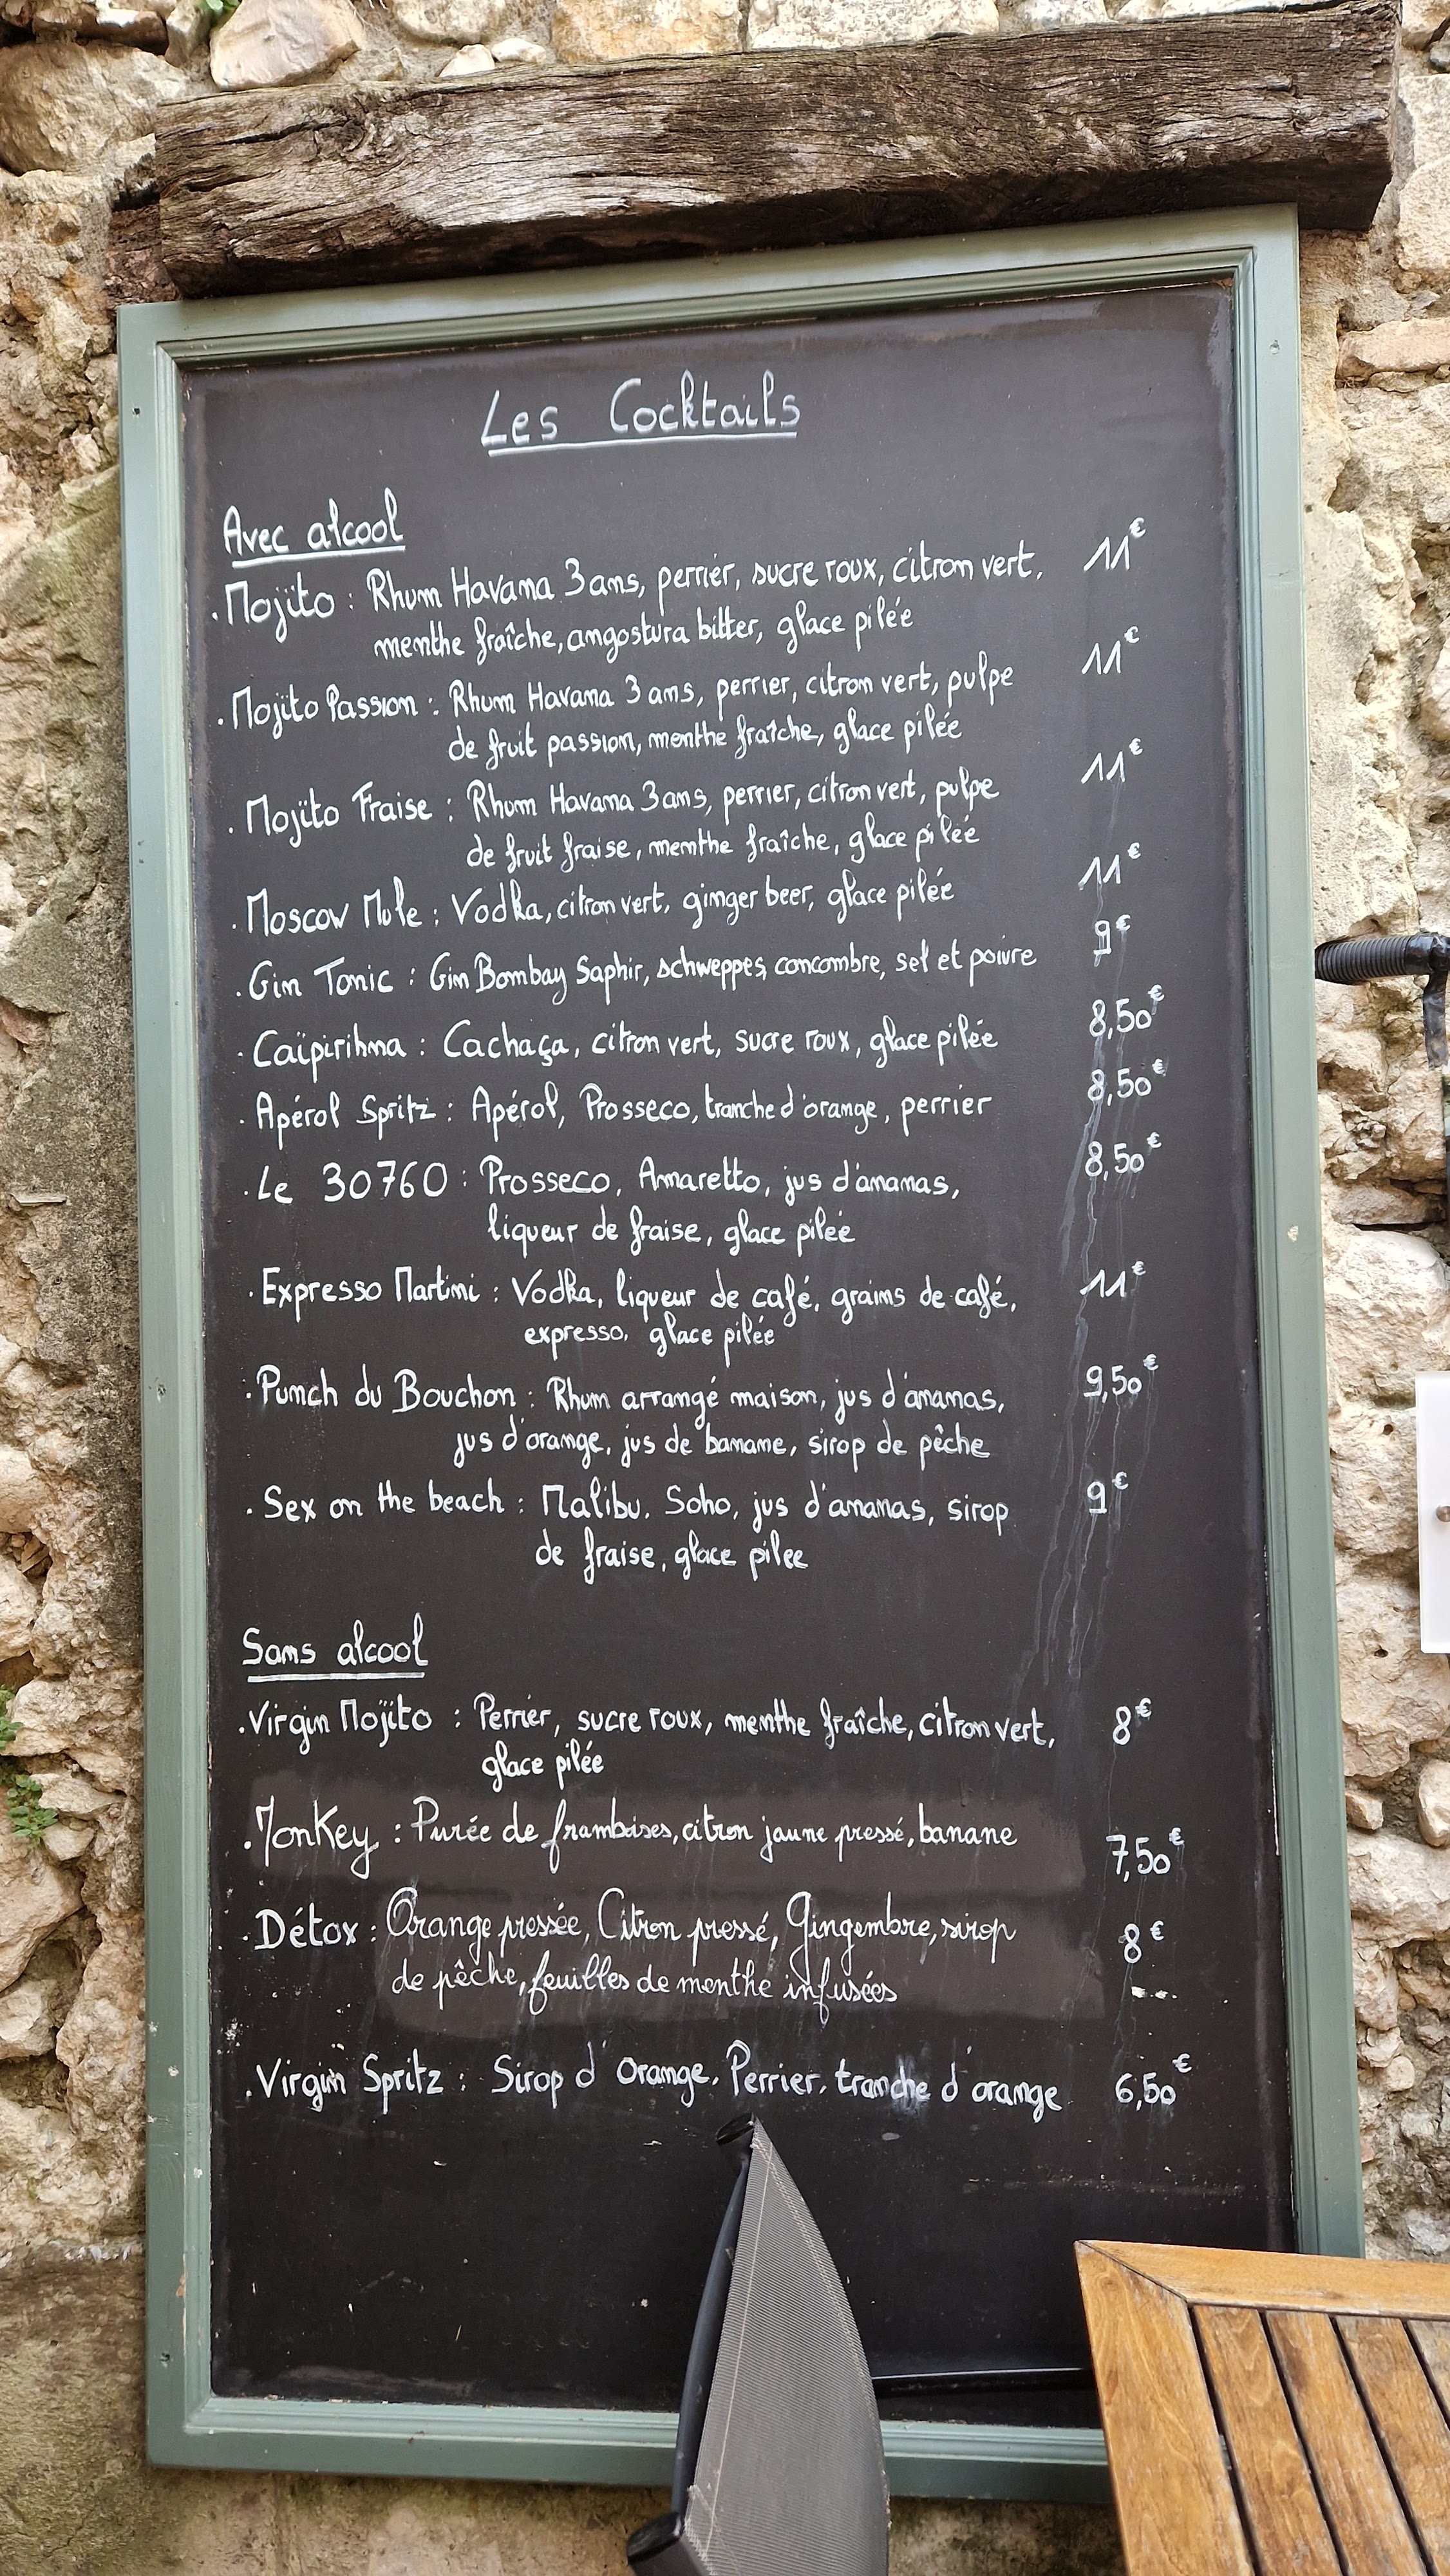 Les Cocktails
Avec alcool
. Mojito : Rhum Havana 3 ans, perrier, sucre roux, citron vert, 11€
menthe fraîche, angostura bitter, glace pilée
. Mojito Passion : Rhum Havana 3 ans, perrier, citron vert, pulpe 11€
de fruit passion, menthe fraîche, glace pilée
. Mojito Fraise : Rhum Havana 3 ans, perrier, citron vert, pulpe 11€
de fruit fraise, menthe fraîche, glace pilée
. Moscow Mule : Vodka, citron vert, ginger beer, glace pilée 11€
. Gin Tonic : Gin Bombay Saphir, schweppes, concombre, sel et poivre 9€
. Caïpirihna : Cachaça, citron vert, sucre roux, glace pilée 8,50€
. Apérol Spritz : Apérol, Prosseco, tranche d'orange, perrier 8,50€
. Le 30760 : Prosseco, Amaretto, jus d'ananas, 8,50€
liqueur de fraise, glace pilée
. Expresso Martini : Vodka, liqueur de café, grains de café, 11€
expresso, glace pilée
. Punch du Bouchon : Rhum arrangé maison, jus d'ananas, 9,50€
jus d'orange, jus de banane, sirop de pêche
. Sex on the beach : Malibu, Soho, jus d'ananas, sirop 9€
de fraise, glace pilee
Sans alcool
. Virgin Mojito : Perrier, sucre roux, menthe fraîche, citron vert, 8€
glace pilée
. Monkey : Purée de framboises, citron jaune pressé, banane 7,50€
. Détox : Orange pressée, Citron pressé, Gingembre, sirop 8€
de pêche, feuilles de menthe infusées
. Virgin Spritz : Sirop d'Orange, Perrier, tranche d'orange 6,50€